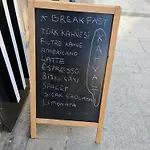 ★ BREAKFAST
TÜRK KAHVESİ
FİLTRE KAHVE
AMERICANO
LATTE
ESPRESSO
BİTKİ ÇAYI
SAHLEP
SICAK ÇİKOLATA
LİMONATA